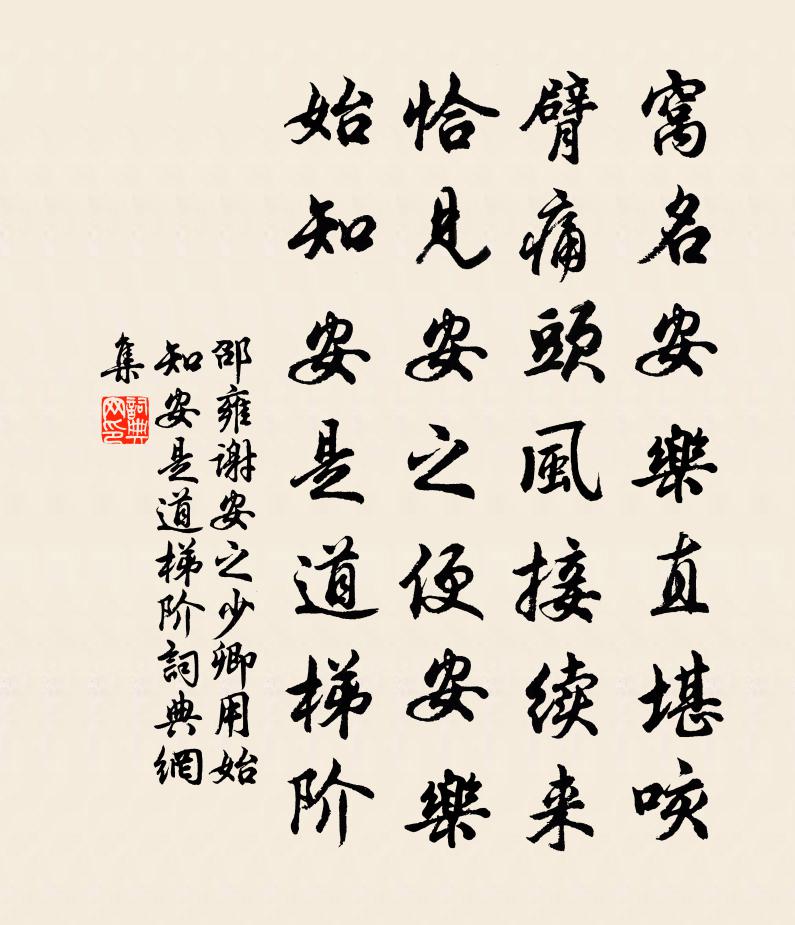 窩名安樂直堪咳
臂痛頭風接续来
恰見安之便安樂
始知安是道梯阶
邵雍谢安之少卿用始
知安是道梯阶詞典網
集
詞典
网印